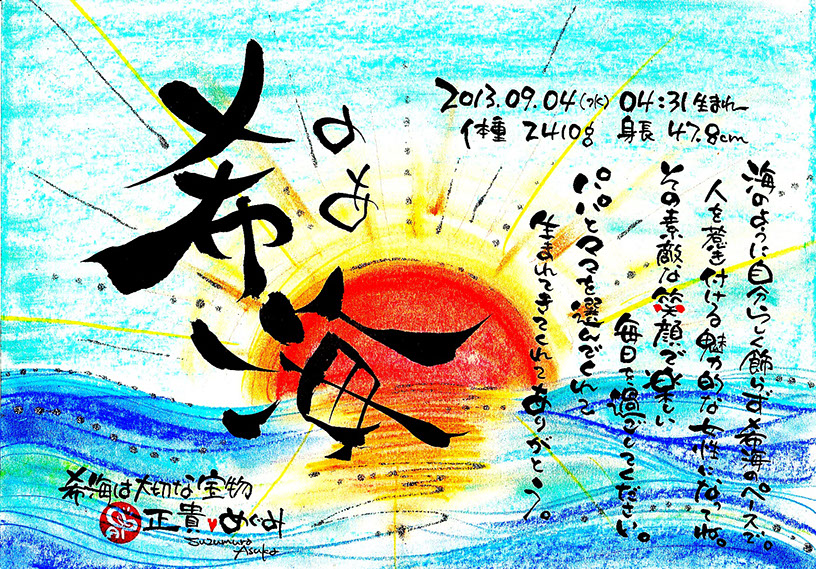 希海
のあ
2013.09.04(水) 04:31生まれ
体重 2410g 身長 47.8cm
海のように自分らしく飾らず希海のペースで。
人を惹き付ける魅力的な女性になってね。
その素敵な笑顔で楽しい
毎日を過ごしてください。
パパとママを選んでくれて
生まれてきてくれてありがとう。
希海は大切な宝物
正貴♥めぐみ
Suzumura
Asuka